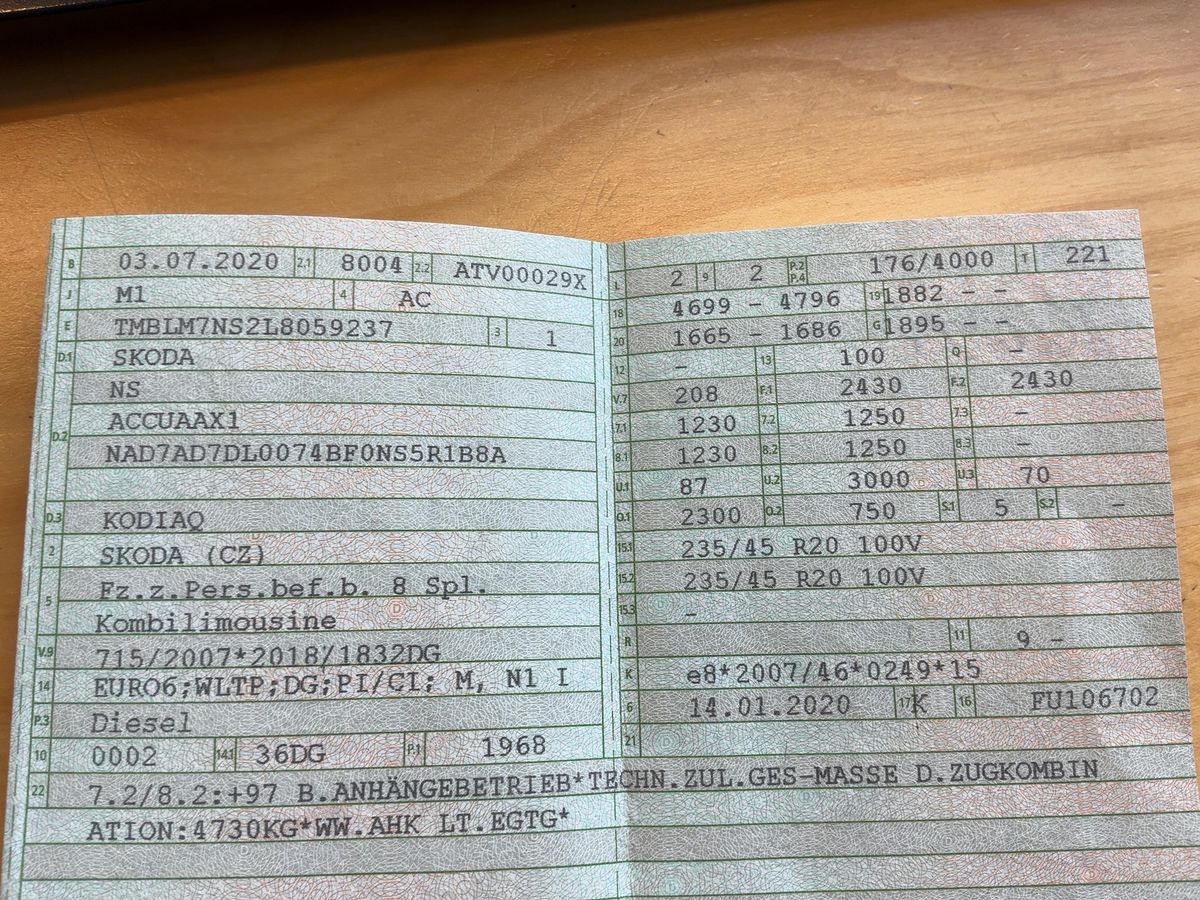 B 03.07.2020 2.1 8004 2.2 ATV00029X
J M1 4 AC
E TMBLM7NS2L8059237 3 1
D.1 SKODA
NS
D.2 ACCUAAX1
NAD7AD7DL0074BF0NS5R1B8A
D.3 KODIAQ
2 SKODA (CZ)
5 Fz.z.Pers.bef.b. 8 Spl.
Kombilimousine
V.9 715/2007*2018/1832DG
14 EURO6;WLTP;DG;PI/CI; M, N1 I
P.3 Diesel
10 0002 14.1 36DG P.1 1968
L 2 9 2 P.2 P.4 176/4000 T 221
18 4699 - 4796 19 1882 - -
20 1665 - 1686 G 1895 - -
12 - 13 100 Q -
V.7 208 F.1 2430 F.2 2430
7.1 1230 7.2 1250 7.3 -
8.1 1230 8.2 1250 8.3 -
U.1 87 U.2 3000 U.3 70
O.1 2300 O.2 750 S.1 5 S.2 -
15.1 235/45 R20 100V
15.2 235/45 R20 100V
15.3 -
R 11 9 -
K e8*2007/46*0249*15
6 14.01.2020 17 K 16 FU106702
21
22 7.2/8.2:+97 B.ANHÄNGEBETRIEB*TECHN.ZUL.GES-MASSE D.ZUGKOMBIN
ATION:4730KG*WW.AHK LT.EGTG*